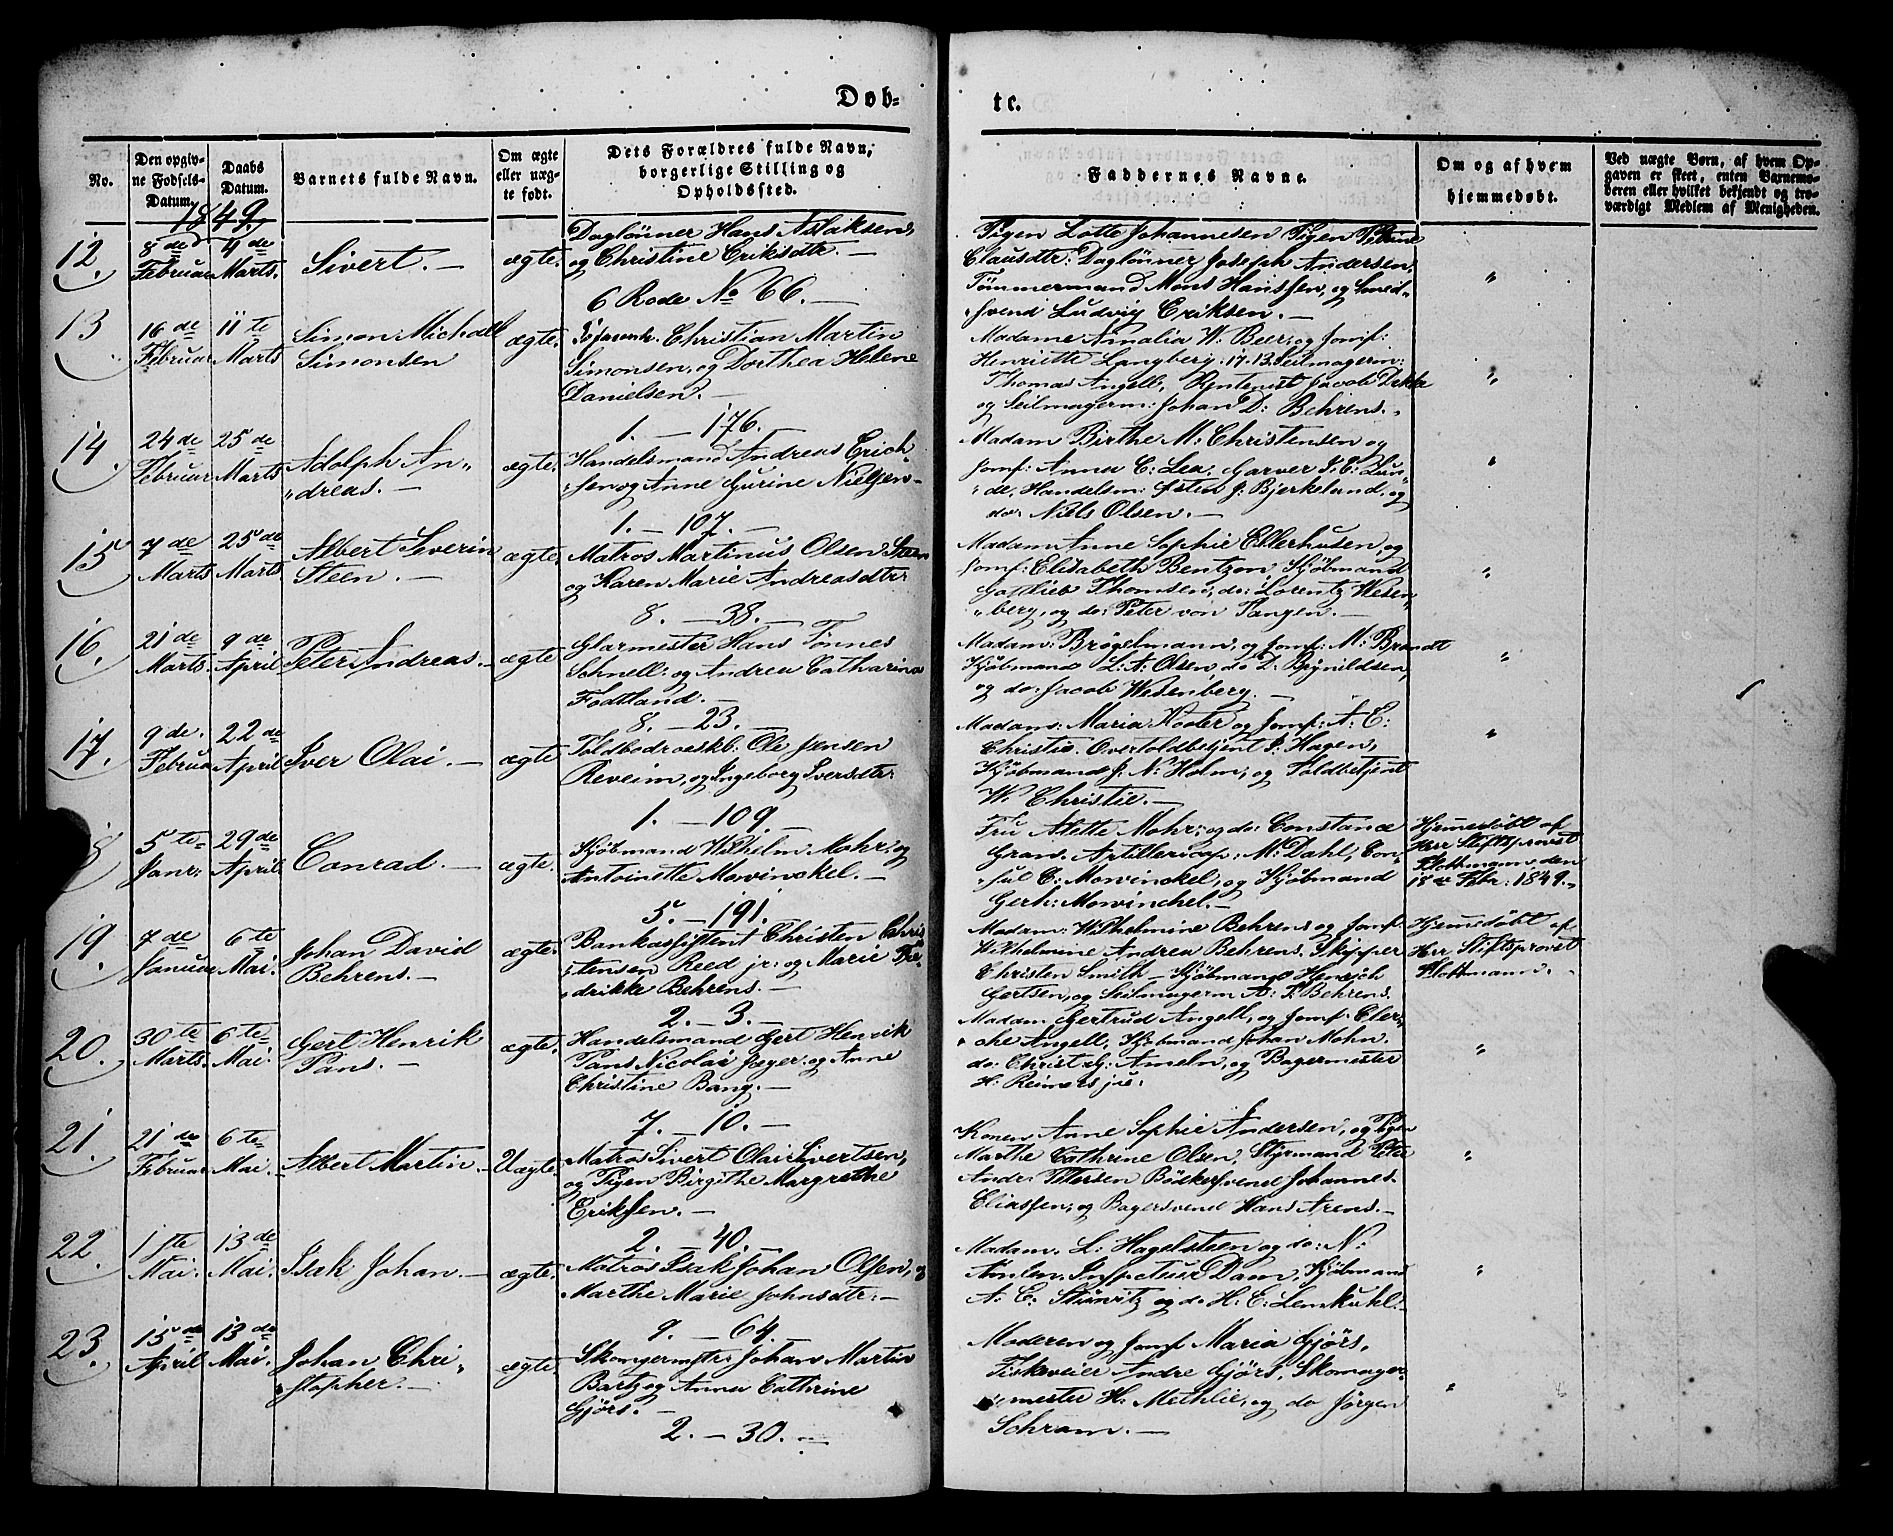 Døb-
te.
No.
Den opgiv-
ne Fødsels-
Datum.
Daabs
Datum.
Barnets fulde Navn.
Om ægte
eller uæg-
te født.
Dets Forældres fulde Navn,
borgerlige Stilling og
Opholdssted.
Faddernes Navne.
Om og af hvem
hjemmedøbt.
Ved uægte Børn, af hvem Op-
gaven er skeet, enten Barnemo-
deren eller hvilket bekjendt og tro-
værdigt Medlem af Menigheden.
1849.
12.
8de
Februar
4de
Marts.
Sivert. —
ægte.
Dagløner Hans Aslaksen,
og Christine Eriksdtr. —
6 Rode No 66. —
Pigen Lotte Johannesen Pigen Petrine
Clausdtr: Dagløner Joseph Andersen,
Tømmermand Mons Hanssen, og Smed-
svend Ludvig Eriksen. —
"
13
16de
Februar
11te
Marts
Simon Michael
Simonsen
ægte.
Christian Martin
Simonsen, og Dorthea Helene
Danielsen. —
1. — 176.
Madame Amalia W. Beer, og Jomf:
Henriette Langberg. Seilmagerm:
Thomas Angell, Rentenist Jacob Dekke
og Seilmagerm: Johan D: Behrens. —
"
14.
24de
Februar
25de
Marts
Adolph An-
dreas. —
ægte.
Handelsmand Andreas Erich-
sen og Anne Gurine Nielsen —
1. — 107. —
Madam Birthe M: Christensen og
Jomf: Anna C: Lea, Garver J. C: Lun-
de, Handelsm: Østen J: Bjerkelund, og
do: Niels Olsen. —
"
15.
7de
Marts
25de
Marts
Albert Severin
Steen. —
ægte.
Matros Martinus Olsen Steen
og Karen Marie Andreasdtr
8. — 38. —
Madam Anne Sophie Ellerhusen, og
Jomf: Elisabeth Bentzon, Kjøbmand
Gottlieb Thomsen, do: Lorentz Wesen-
berg, og do: Peter von Tangen. —
"
16.
21de
Marts.
9de
April
Peter Andreas. —
ægte
Glarmester Hans Tønnes
Schnell: og Andrea Catharina
Fodtland. —
8. — 23. —
Madam: Brøgelmann, og Jomf: M: Brandt
Kjøbmand L: A: Olsen, do D: Brynildsen,
og do: Jacob Wesenberg. —
"
17.
9de.
Februar
22de
April
Iver Olai. —
ægte
Ole Jensen
Reveim, og Ingeborg Iversdtr
1. — 109
Madam: Maria Koster og Jomf: A: E:
Christie. Overtoldbetjent P: Hagen,
Kjøbmand J: N: Holm, og Toldbetjent
W. Christie. —
"
5te
Janr:
29de
April
Conrad. —
ægte.
Kjøbmand Wilhelm Mohr, og
Antoinette Mowinckel. —
5. — 191. —
Fru Alette Mohr, og do: Constance
Gran. Artillericap: M: Dahl, Con-
sul C: Mowinckel, og Kjøbmand
Gerh: Mowinckel. —
Hjemedøbt af
Herr Stiftsprovst
den
18de Febr: 1849. —
19.
7de
Januar
6te
Mai.
Johan David
Behrens. —
ægte.
Bankassistent Christen Chris
tensen Reed jr: og Marie Fre-
drikke Behrens. —
2. — 3. —
Madam: Wilhelmine Behrens og Jomf:
Wilhelmine Andrea Behrens. Skipper
Christen Smith — Kjøbmand Henrich
Gertsen, og Seilmagerm A: P. Behrens.
Hjemedøbt af
Herr Stiftsprovst
20.
30te
Marts.
6te
Mai.
Gert Henrik
Pans. —
ægte.
Handelsmand Gert Henrik
Pans Nicolai Jæger og Anne
Christine Bang. —
7. — 10. —
Madam Gertrud Angell, og Jomf: Cler-
che Angell, Kjøbmand Johan Mohn.
do: Christ. G: Ameln, og Bagermester
H: Reimers jun:
"
21.
21de
Februar
6te
Mai.
Albert Martin. —
Uægte.
Matros Sivert Olai Sivertsen,
og Pigen Birgithe Margrethe
Eriksen. —
2. — 40. —
Konen Anne Sophie Andersen, og Pigen
Marthe Cathrine Olsen, Styrmand Peter
Andr: Petersen Bødkersvend Johannes
Eliassen, og Bagersvend Hans Arens. —
"
22.
1ste
Mai.
13de
Mai.
Isak Johan. —
ægte.
Matros Isak Johan Olsen, og
Marthe Marie Johnsdtr: —
9. — 64.
Madam. L: Hagelsteen og do: N:
Amlen. Inspecteur Dam, Kjøbmand
A: C: Stüwitz og do H: C: Lemkuhl.
"
23.
15de
April
13de
Mai.
Johan Chri-
stopher. —
ægte.
Skomgermstr: Johan Martin
Bartz og Anna Cathrine
Gjørs. —
2. — 30. —
Moderen og Jomf Maria Gjørs,
Fiskeveier Andre Gjørs, Skomager-
mester H: Methlie, og do Jørgen
Schram. —
"